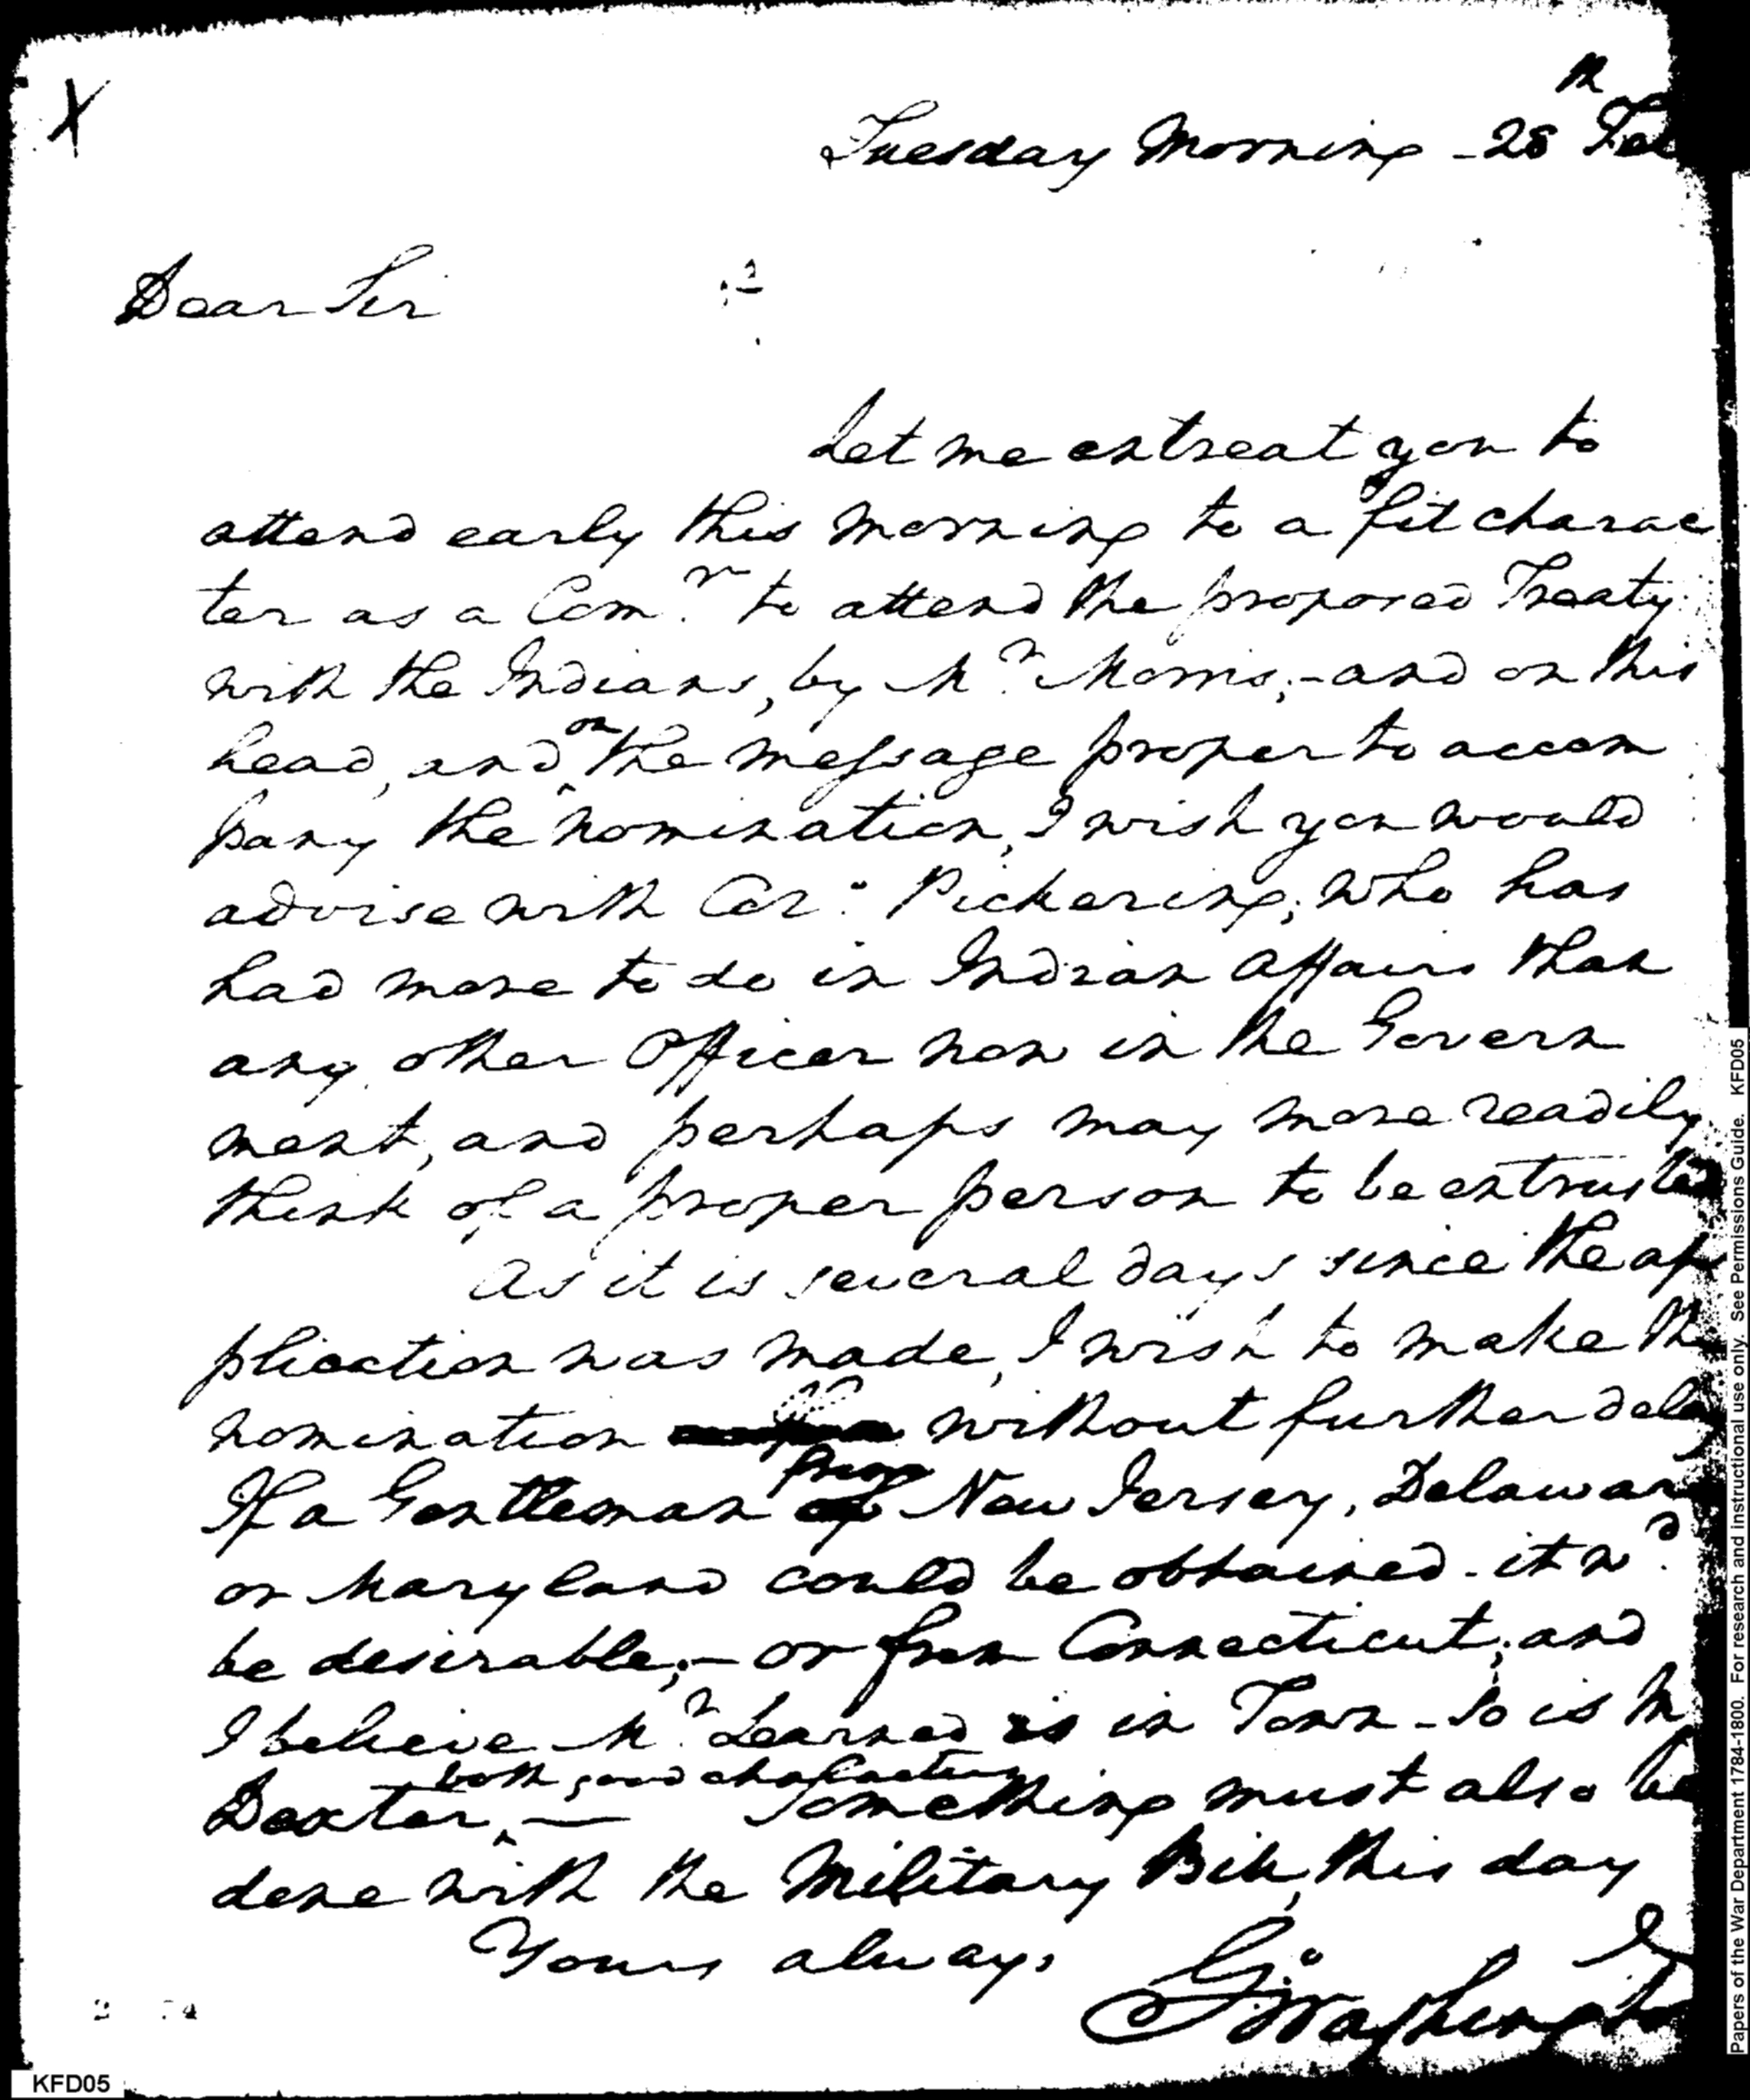 X
Tuesday Morning - 28th Feb
Dear Sir
Let me entreat you to
attend early this morning to a fit charac
ter as a Comr. to attend the proposed Treaty
with the Indians, by Mr. Morris;-and on this
head, and on the message proper to accom
pany the nomination, I wish you would
advise with Col. Pickering; who has
had more to do in Indian Affairs than
any other Officer now in the Govern
ment, and perhaps may more readily
think of a proper person to be entrusted
As it is several days since the ap
plication was made, I wish to make th
nomination without further delay
If a Gentleman from New Jersey, Delawar
or Maryland could be obtained - it wd.
be desirable;- or from Connecticut; and
I believe Mr. Learned is in Town - so is M
Dexter, both good characters — Something must also be
done with the Military Bill, this day
Yours always
Go: Washington
KFD05
Papers of the War Department 1784-1800. For research and instructional use only. See Permissions Guide. KFD05